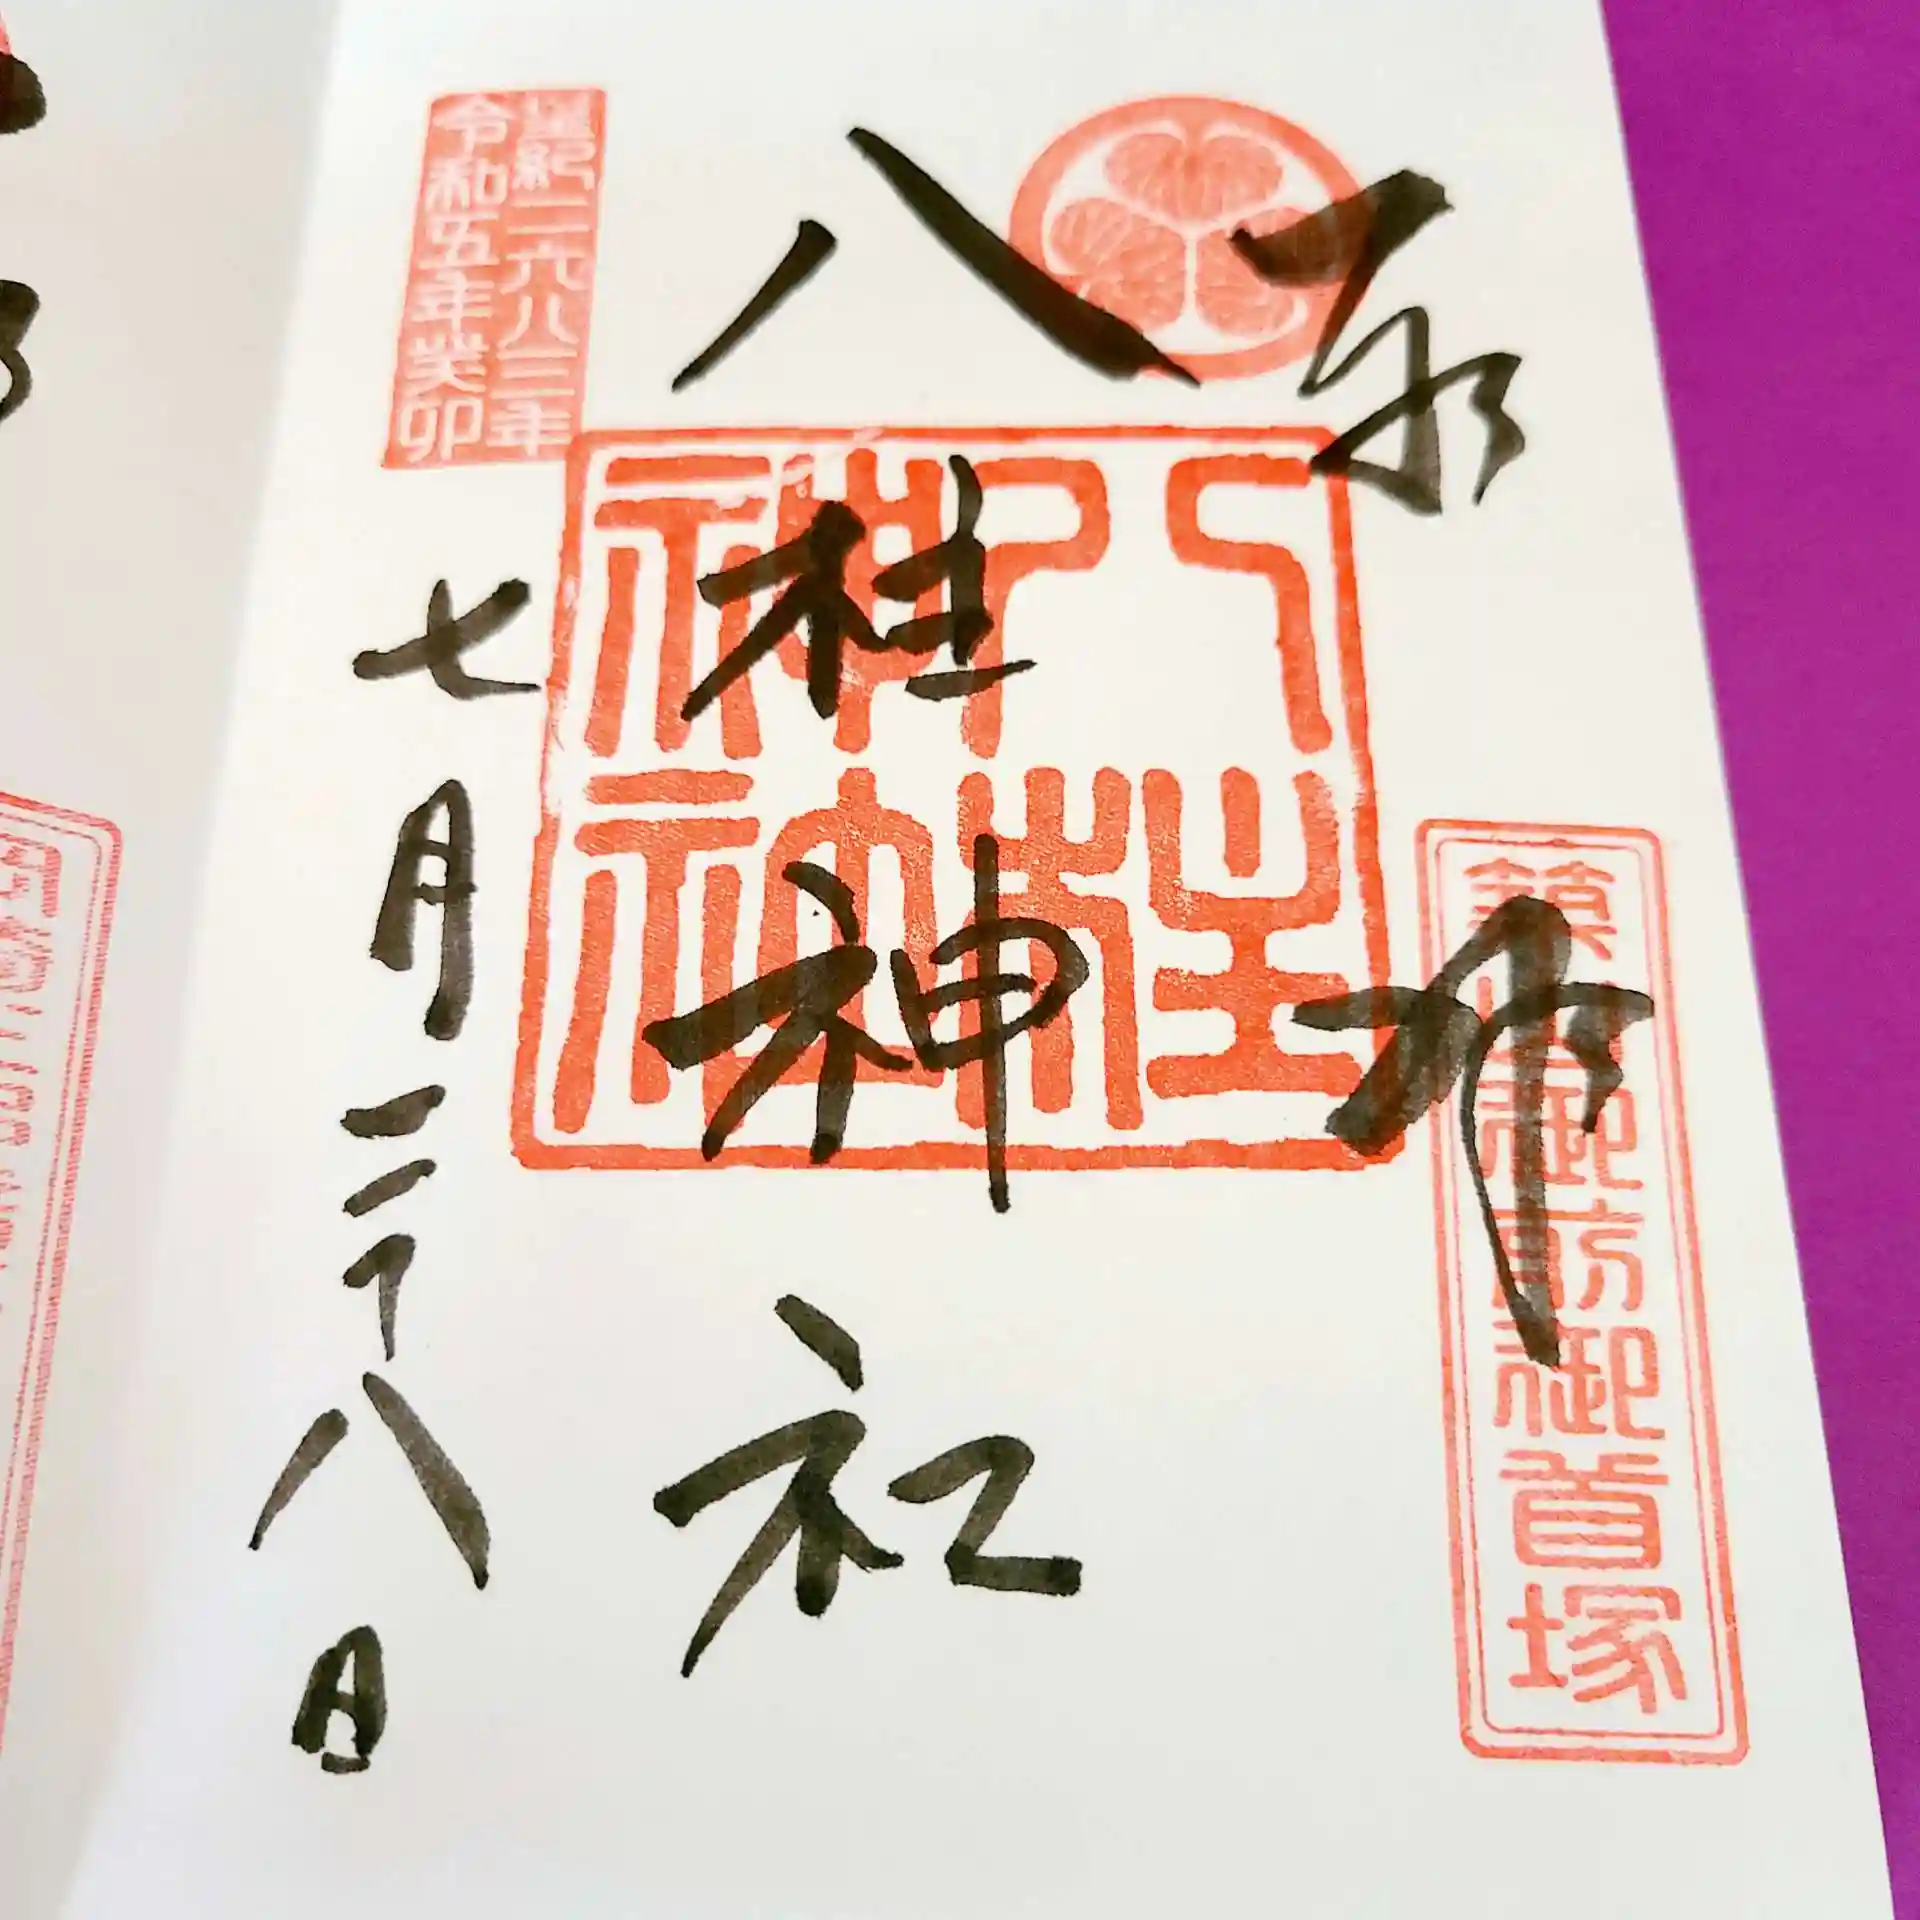 奉拝
八柱神社
七月二十八日
皇紀二六八三年
令和五年癸卯
八柱神社
築山御前御首塚